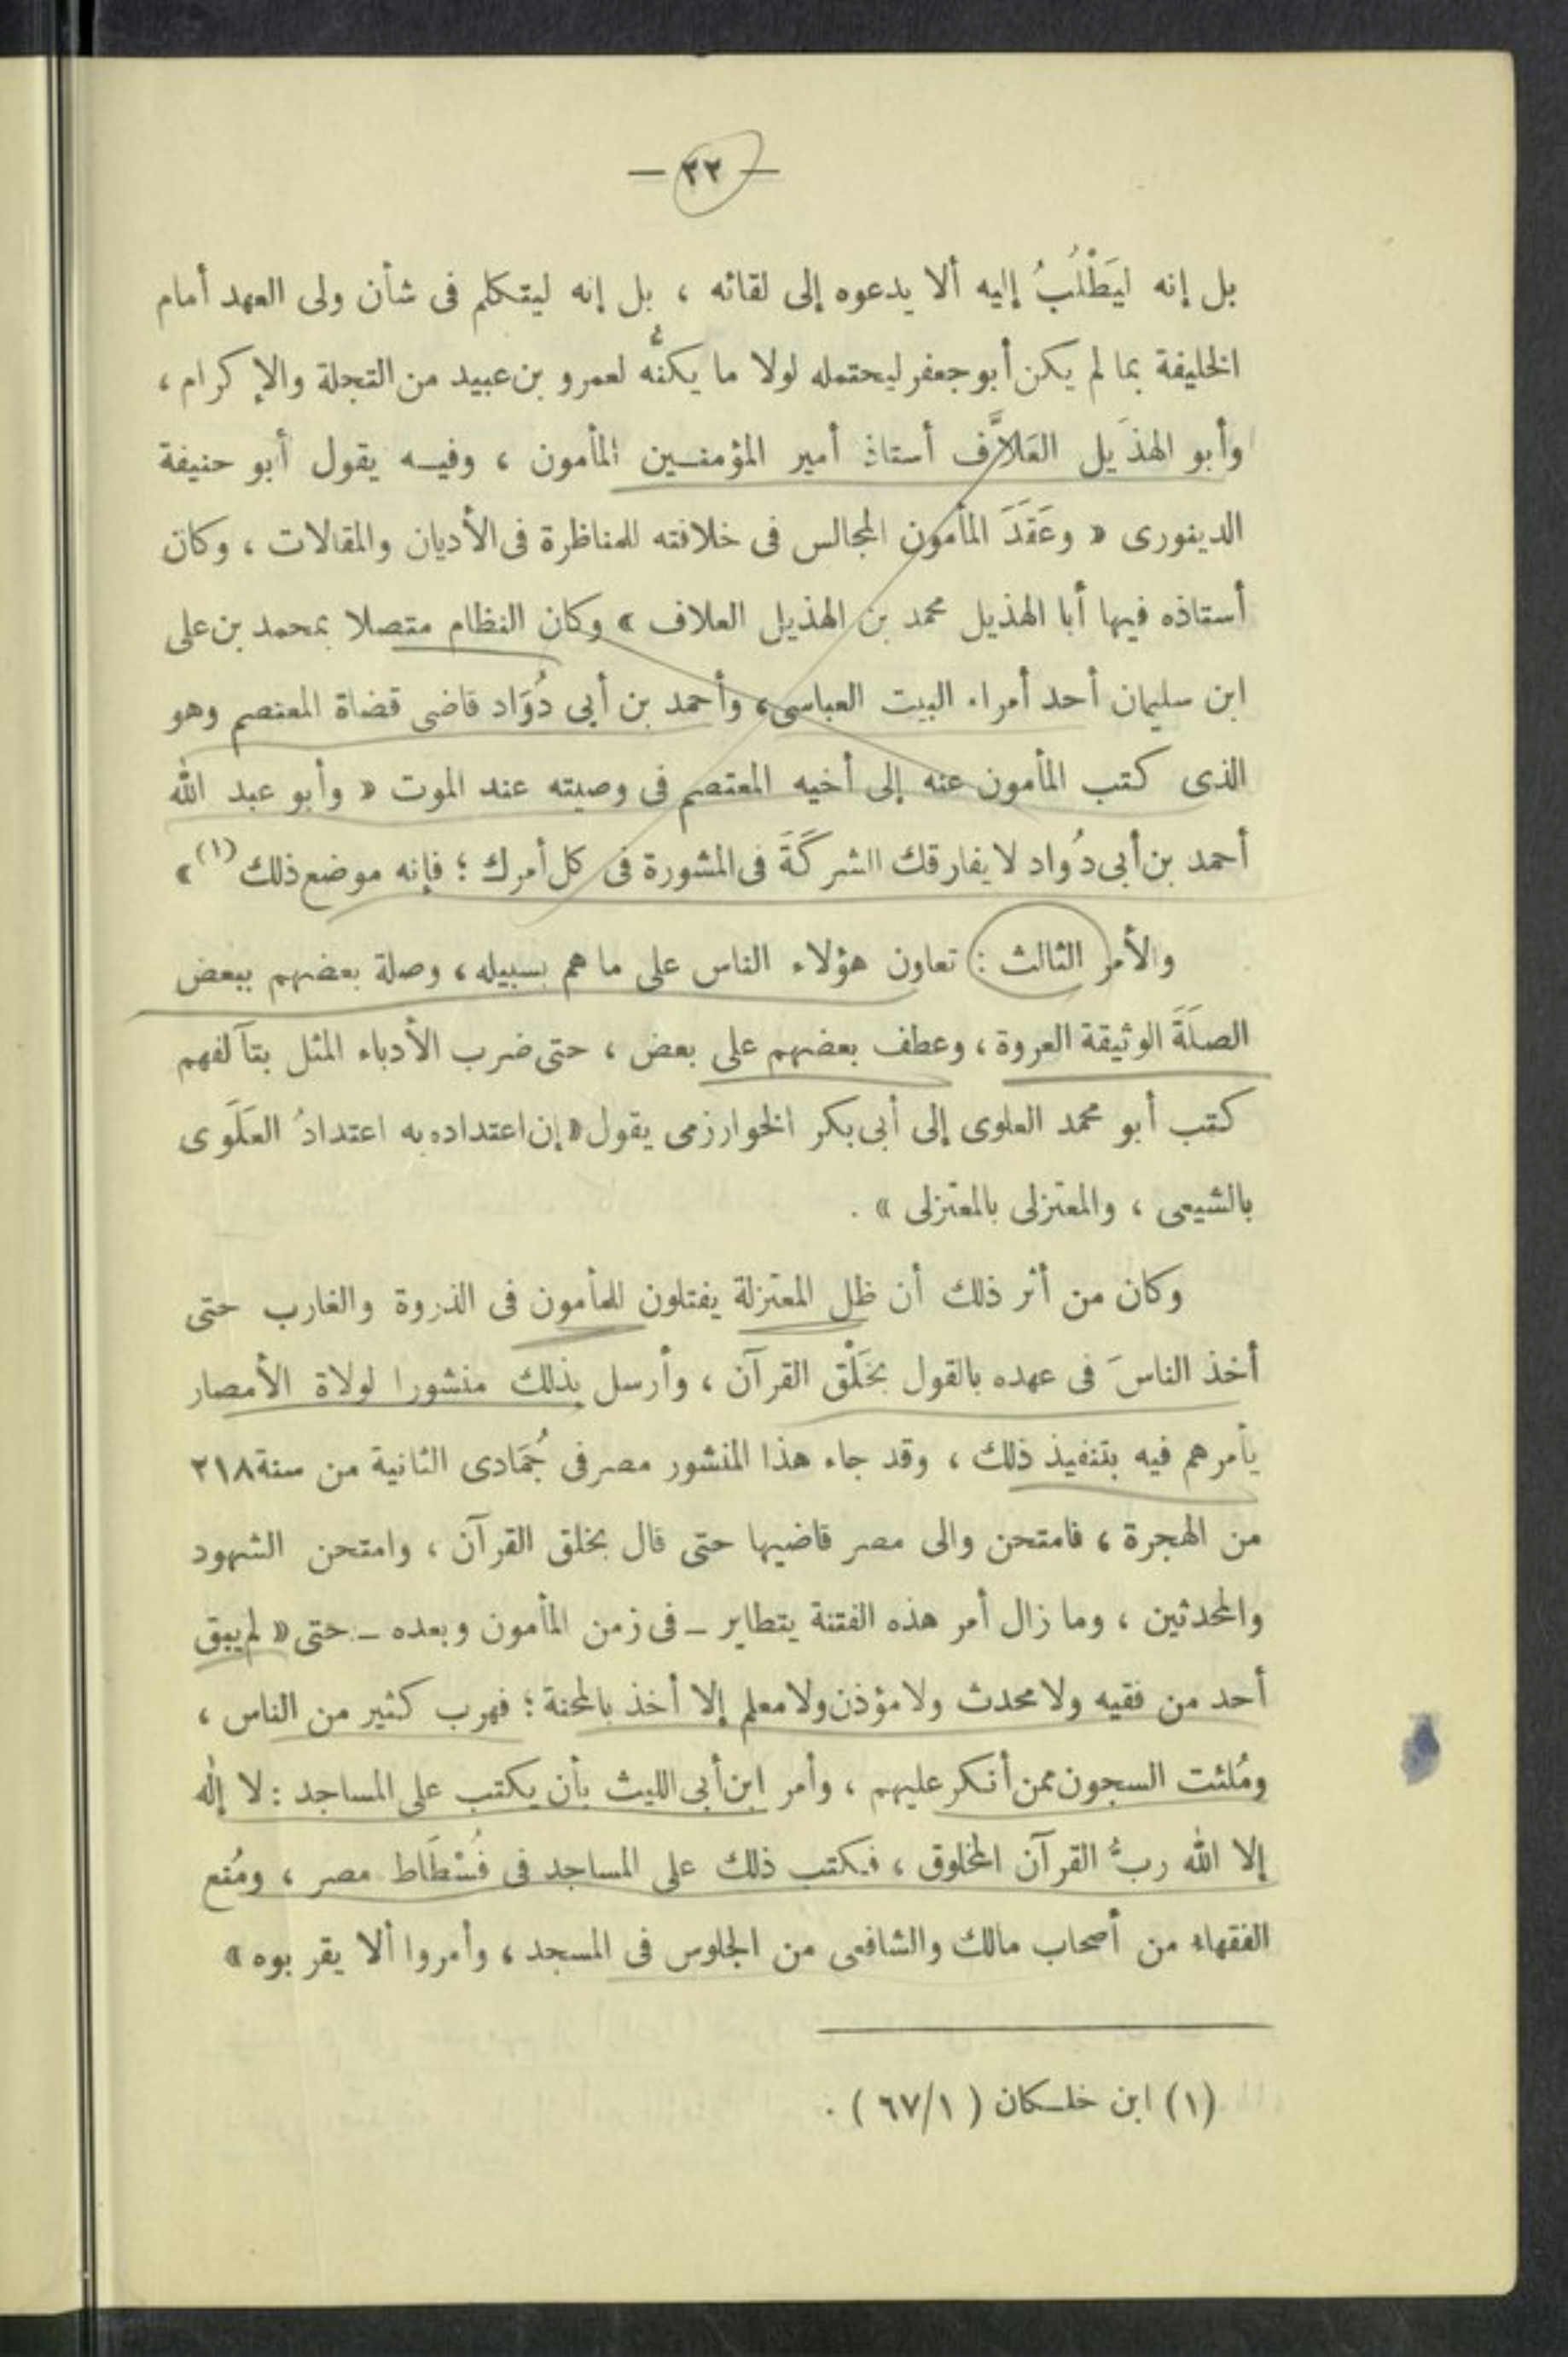 — ٢٢ —
بل إنه ليَطْلُبُ إليه ألا يدعوه إلى لقائه ، بل إنه ليتكلم فى شأن ولى العهد أمام
الخليفة بما لم يكن أبو جعفر ليحتمله لولا ما يكنُّه لعمرو بن عبيد من التجلة والإكرام ،
وأبو الهذَيل العَلاَّف أستاذ أمير المؤمنين المأمون ، وفيه يقول أبو حنيفة
الدينورى « وعَقَدَ المأمون المجالس فى خلافته للمناظرة فى الأديان والمقالات ، وكان
أستاذه فيها أبا الهذيل محمد بن الهذيل العلاف » وكان النظام متصلا بمحمد بن على
ابن سليمان أحد أمراء البيت العباسى ، وأحمد بن أبى دُوَاد قاضى قضاة المعتصم وهو
الذى كتب المأمون عنه إلى أخيه المعتصم فى وصيته عند الموت « وأبو عبد الله
أحمد بن أبى دُواد لا يفارقك الشركَةَ فى المشورة فى كل أمرك ؛ فإنه موضع ذلك (١) »
والأمر الثالث : تعاون هؤلاء الناس على ما هم بسبيله ، وصلة بعضهم ببعض
الصلَةَ الوثيقة العروة ، وعطف بعضهم على بعض ، حتى ضرب الأدباء المثل بتآلفهم
كتب أبو محمد العلوى إلى أبى بكر الخوارزمى يقول « إن اعتداده به اعتدادُ العَلَوى
بالشيعى ، والمعتزلى بالمعتزلى » .
وكان من أثر ذلك أن ظل المعتزلة يفتلون للمأمون فى الذروة والغارب حتى
أخذ الناسَ فى عهده بالقول بخَلْق القرآن ، وأرسل بذلك منشورا لولاة الأمصار
يأمرهم فيه بتنفيذ ذلك ، وقد جاء هذا المنشور مصر فى جُمَادى الثانية من سنة ٢١٨
من الهجرة ، فامتحن والى مصر قاضيها حتى قال بخلق القرآن ، وامتحن الشهود
والمحدثين ، وما زال أمر هذه الفتنة يتطاير ــ فى زمن المأمون وبعده ــ حتى « لم يبق
أحد من فقيه ولا محدث ولا مؤذن ولا معلم إلا أخذ بالمحنة ؛ فهرب كثير من الناس ،
ومُلئت السجون ممن أنكر عليهم ، وأمر ابن أبى الليث بأن يكتب على المساجد : لا إله
إلا الله ربُّ القرآن المخلوق ، فكتب ذلك على المساجد فى فُسْطَاط مصر ، ومُنع
الفقهاء من أصحاب مالك والشافعى من الجلوس فى المسجد ، وأمروا ألا يقربوه »
(١) ابن خلكان ( ٦٧/١ ) .